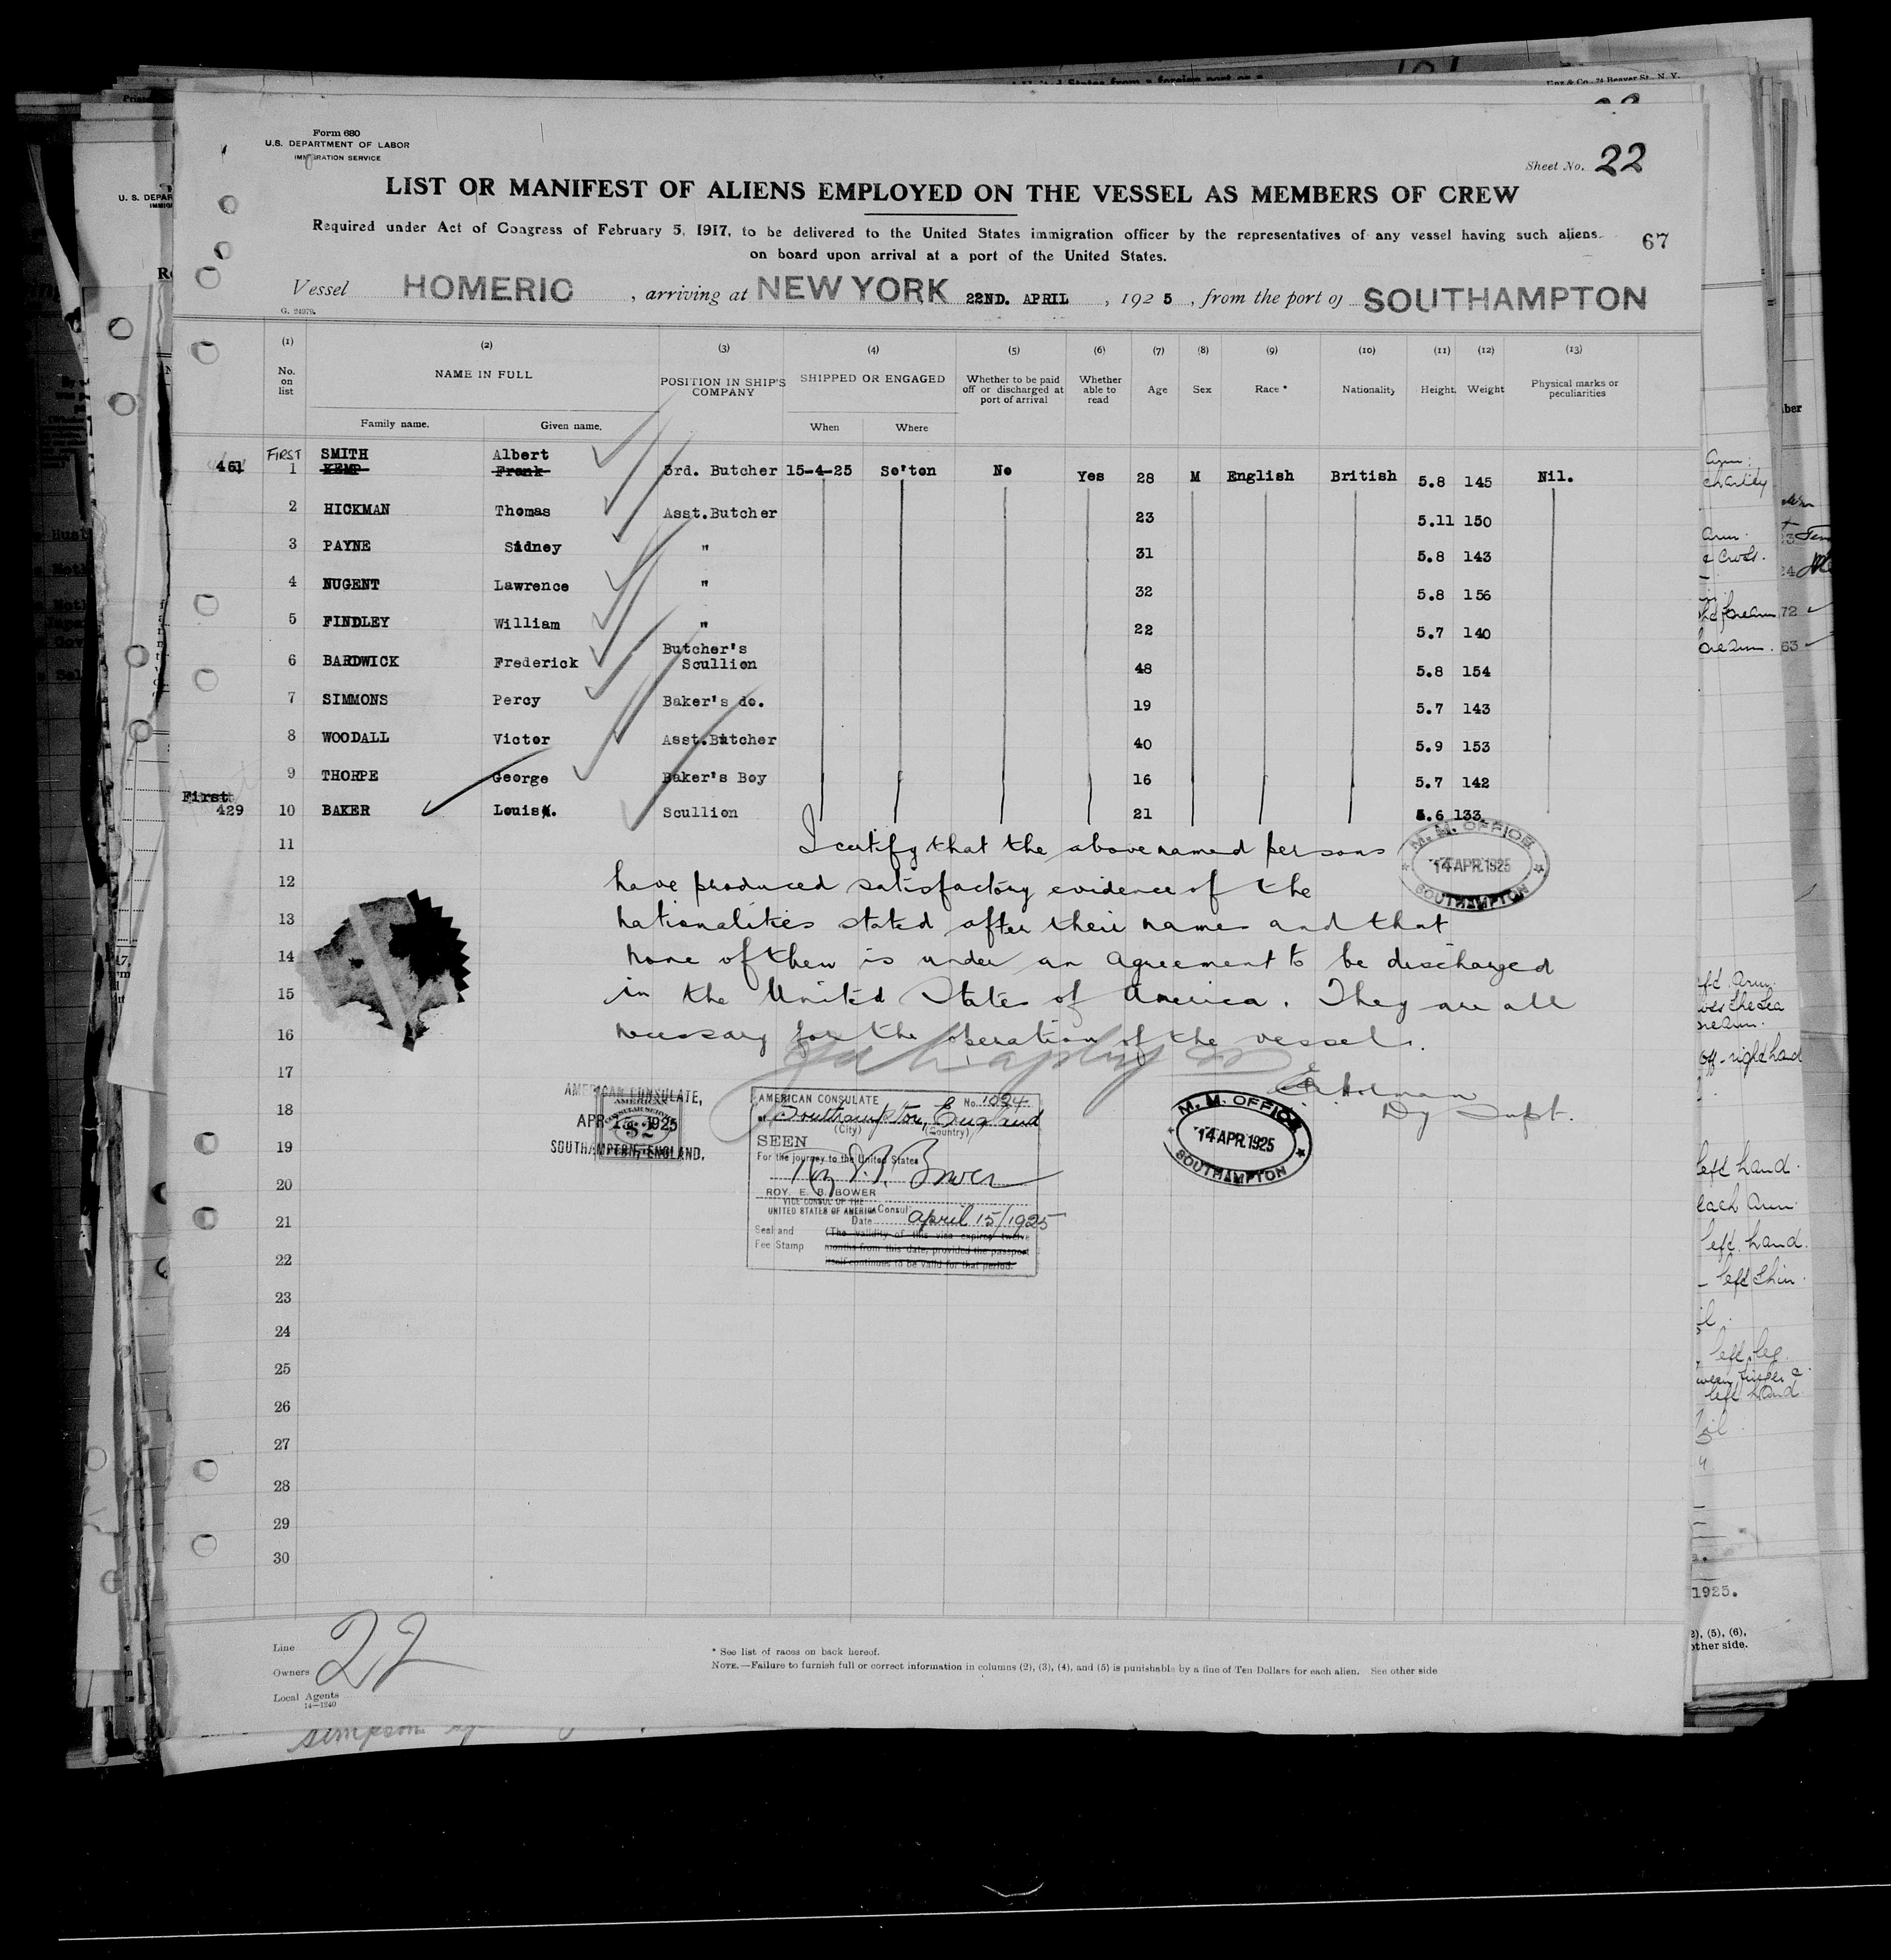 Form 680
U.S. DEPARTMENT OF LABOR
IMMIGRATION SERVICE
Sheet No. 22
LIST OR MANIFEST OF ALIENS EMPLOYED ON THE VESSEL AS MEMBERS OF CREW
Required under Act of Congress of February 5, 1917, to be delivered to the United States immigration officer by the representatives of any vessel having such aliens
on board upon arrival at a port of the United States.
67
Vessel HOMERIC, arriving at NEW YORK 22ND. APRIL, 1925, from the port of SOUTHAMPTON
G. 24979.
(1) (2) (3) (4) (5) (6) (7) (8) (9) (10) (11) (12) (13)
No. on list NAME IN FULL POSITION IN SHIP'S COMPANY SHIPPED OR ENGAGED Whether to be paid off or discharged at port of arrival Whether able to read Age Sex Race * Nationality Height Weight Physical marks or peculiarities
Family name. Given name. When Where
FIRST SMITH Albert
461 1 KEMP Frank 3rd. Butcher 15-4-25 So'ton No Yes 28 M English British 5.8 145 Nil.
2 HICKMAN Thomas Asst.Butcher 23 5.11 150
3 PAYNE Sidney " 31 5.8 143
4 NUGENT Lawrence " 32 5.8 156
5 FINDLEY William " 22 5.7 140
6 BARDWICK Frederick Butcher's Scullion 48 5.8 154
7 SIMMONS Percy Baker's do. 19 5.7 143
8 WOODALL Victor Asst.Butcher 40 5.9 153
9 THORPE George Baker's Boy 16 5.7 142
First
429 10 BAKER Louis. Scullion 21 5.6 133
11
12
13
14
15
16
17
18
19
20
21
22
23
24
25
26
27
28
29
30
I certify that the abovenamed persons
have produced satisfactory evidence of the
nationalities stated after their names and that
none of them is under an agreement to be discharged
in the United States of America. They are all
necessary for the operation of the vessel.
Dy Supt.
M. M. OFFICE
14 APR.1925
SOUTHAMPTON
M. M. OFFICE
14 APR.1925
SOUTHAMPTON
AMERICAN CONSULATE,
APR 15 1925
SOUTHAMPTON, ENGLAND.
AMERICAN
CONSULAR SERVICE
$2
AMERICAN CONSULATE No. 1024
at Southampton, England
(City) (Country)
SEEN
For the journey to the United States
Roy E. B. Bower
ROY. E. B. BOWER
VICE CONSUL OF THE
UNITED STATES OF AMERICA Consul
Date April 15/1925
Seal and
Fee Stamp
(The validity of this visa expires twelve
months from this date, provided the passport
itself continues to be valid for that period.
Line
Owners
Local Agents
14—1240
22
* See list of races on back hereof.
NOTE.—Failure to furnish full or correct information in columns (2), (3), (4), and (5) is punishable by a fine of Ten Dollars for each alien. See other side
simpson
left hand.
each arm.
left hand.
left shin.
left leg.
left hand
1925.